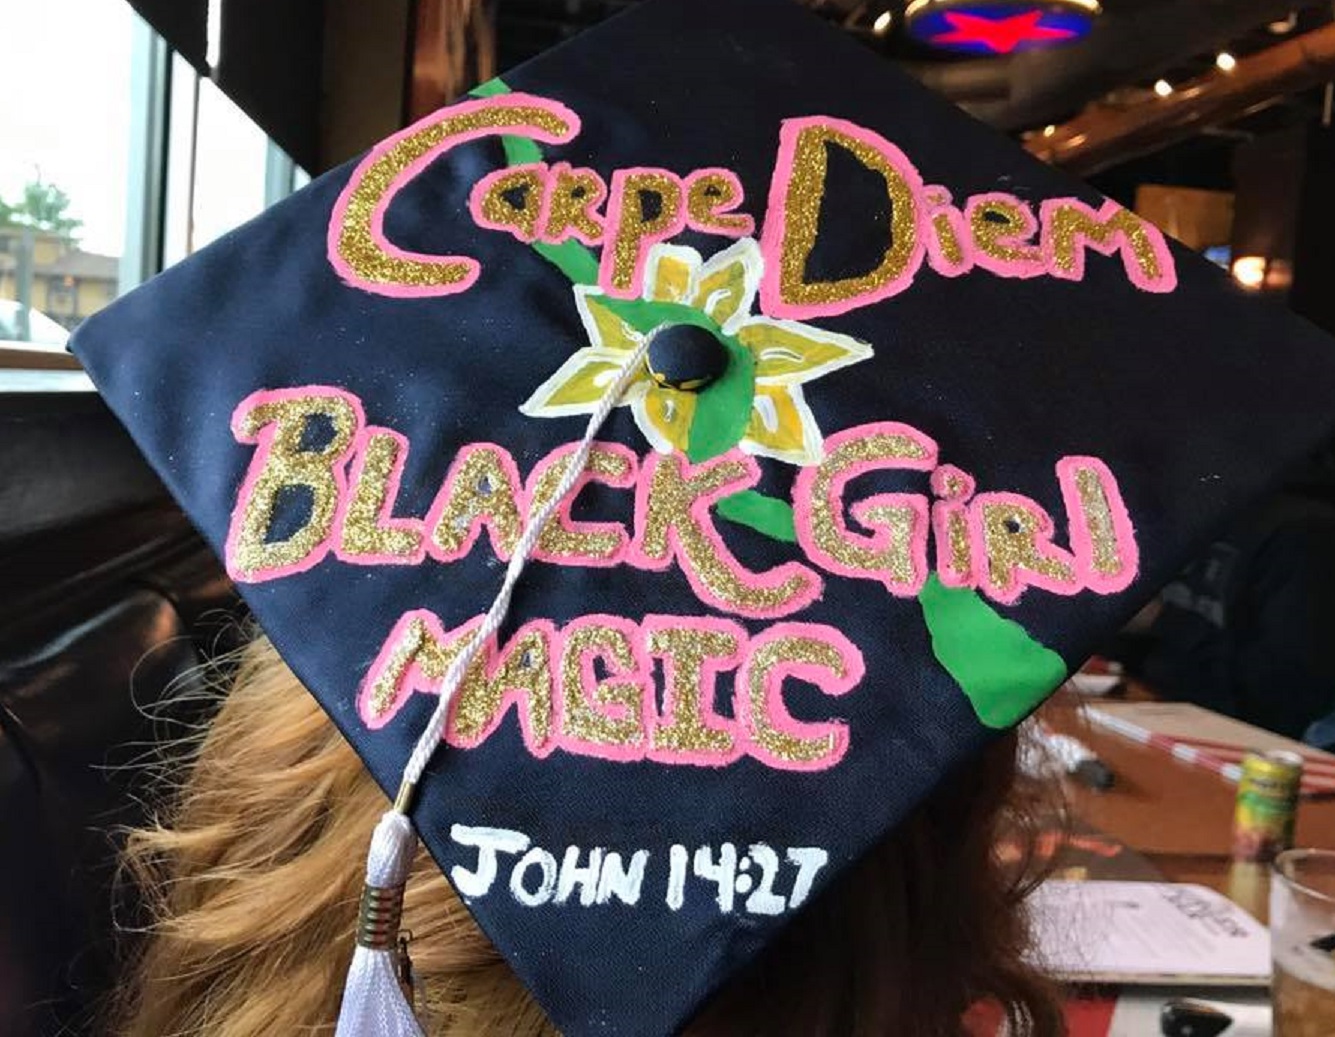 Carpe Diem
BLACK GiRl
MAGIC
JOHN 14:27